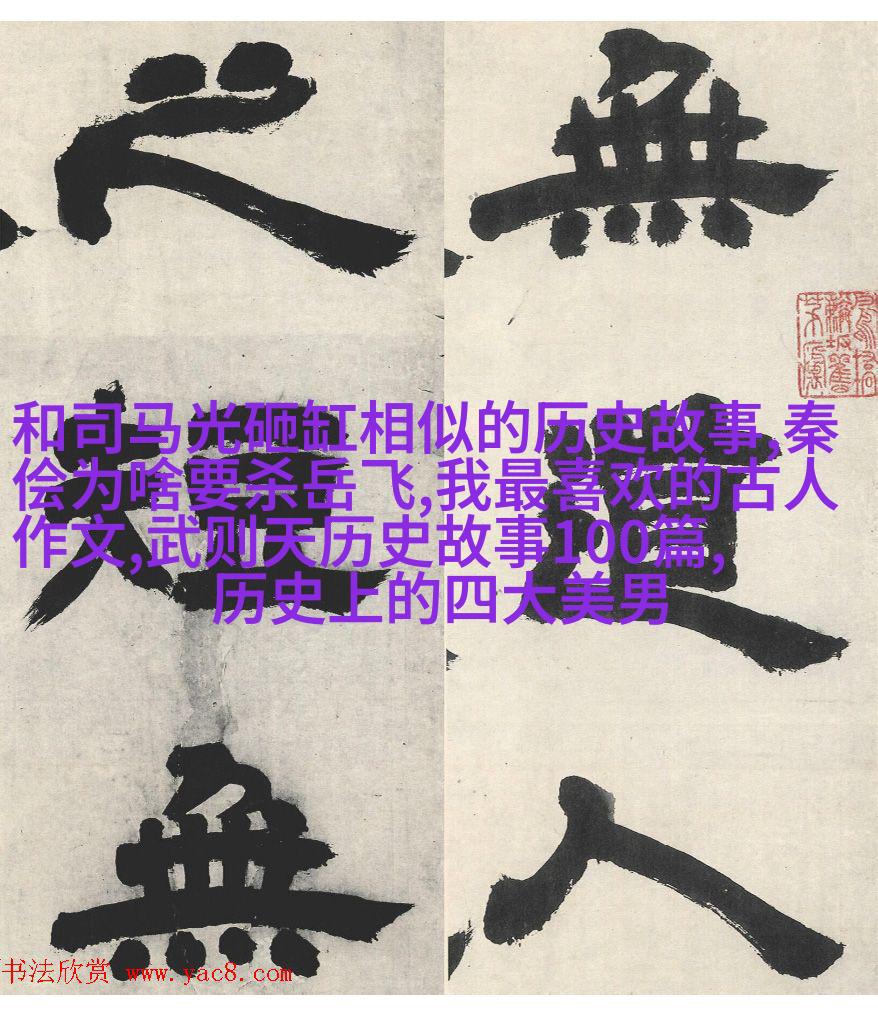 無
道
人
之
短
無
和司马光砸缸相似的历史故事,秦
侩为啥要杀岳飞,我最喜欢的古人
作文,武则天历史故事100篇,
历史上的四大美男
书法欣赏 www.yac8.com